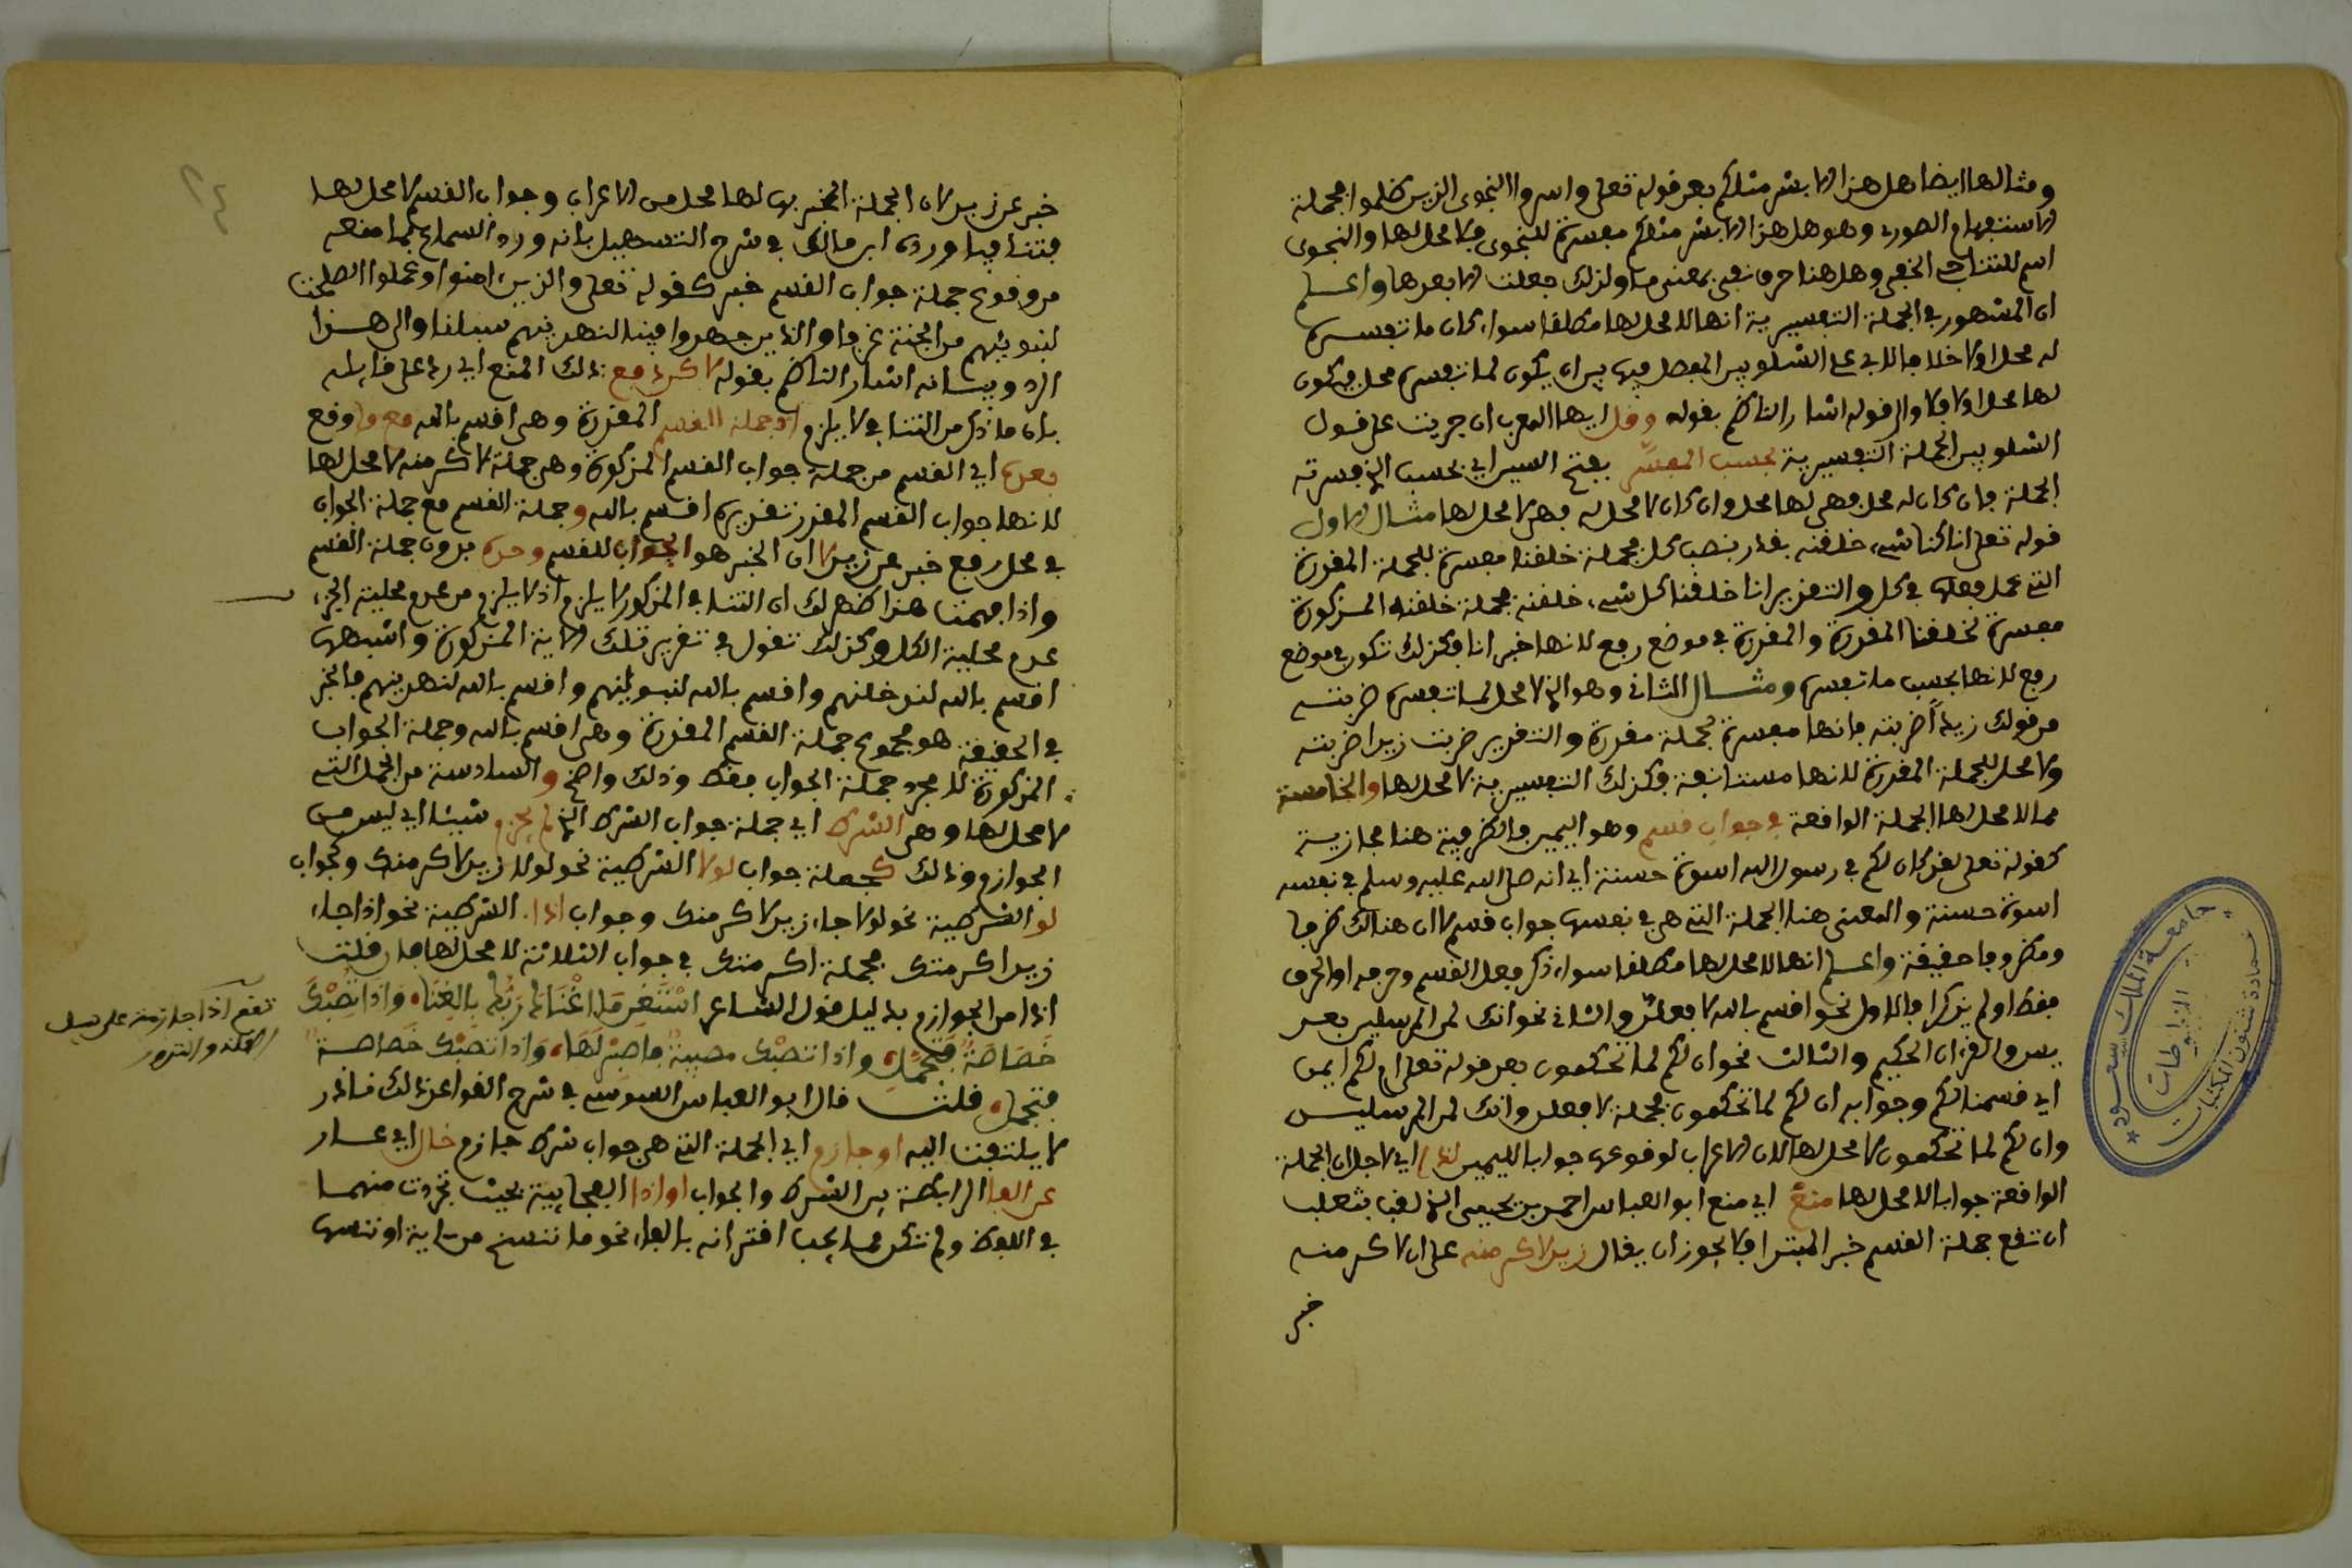 ومثالها ايضا هل هذا الا بشر مثلكم بعد قوله تعلى واسروا النجوى الذين ظلموا فجملة
الاستفهام الصوري وهو هل هذا الا بشر مثلكم مفسرة للنجوى فلا محل لها والنجوى
اسم للتناجي الخفي وهل هنا حرف نفي بمعنى ما ولذلك جعلت الا بعدها واعلم
ان المشهور في الجملة التفسيرية انها لا محل لها مطلقا سواء كان ما تفسره
له محل او لا خلافا لابي علي الشلوبين المفصل فيها بين ان يكون لما تفسره محل فيكون
لها محل او لا فلا والى قوله اشار الناظم بقوله وقل ايها المعرب ان جريت على قول
الشلوبين الجملة التفسيرية بحسب المفسَّر بفتح السين اي بحسب الذي فسرته
الجملة فان كان له محل فهي لها محل وان كان لا محل له فهي لا محل لها مثال الاول
قوله تعلى انا كل شيء خلقنه بقدر بنصب كل فجملة خلقنا مفسرة للجملة المقدرة
التي عمل فعلها في كل والتقدير انا خلقنا كل شيء خلقنه فجملة خلقنه المذكورة
مفسرة لخلقنا المقدرة والمقدرة في موضع رفع لانها خبر انا فكذلك تكون في موضع
رفع لانها بحسب ما تفسره ومثال الثاني وهو الذي لا محل لما تفسره ضربته
من قولك زيداً ضربته فانها مفسرة لجملة مقدرة والتقدير ضربت زيدا ضربته
ولا محل للجملة المقدرة لانها مستانفة فكذلك التفسيرية لا محل لها والخامسة
مما لا محل لها الجملة الواقعة في جواب قسم وهو اليمين والظرفية هنا مجازية
كقوله تعلى لقد كان لكم في رسول الله اسوة حسنة اي انه صلى الله عليه وسلم في نفسه
اسوة حسنة والمعنى هنا الجملة التي هي في نفسها جواب قسم لا ان هنالك ظرفا
ومظروفا حقيقة واعلم انها لا محل لها مطلقا سواء ذكر فعل القسم وحرفه او الحرف
فقط او لم يذكرا فالاول نحو اقسم بالله لافعلن والثاني نحو انك لمن المرسلين بعد
يس والقران الحكيم والثالث نحو ان لكم لما تحكمون بعد قوله تعلى ام لكم ايمن
اي قسمنا لكم وجوابه ان لكم لما تحكمون فجملة لافعلن وانك لمن المرسلين
وان لكم لما تحكمون لا محل لها من الاعراب لوقوعها جوابا لليمين لذا اي لاجل ان الجملة
الواقعة جوابا لا محل لها منع اي منع ابو العباس احمد بن يحيى الذي لقب بثعلب
ان تقع جملة القسم خبر المبتدا فلا يجوز ان يقال زيد لاكرمنه على ان لاكرمنه
خبر
جامعة الملك سعود
عمادة شئون المكتبات
المخطوطات
٢٤
خبر عن زيد لان الجملة المخبر بها لها محل من الاعراب وجواب القسم لا محل لها
فتنافيا ورده ابن مالك في شرح التسهيل بانه ورد السماع بما منعه
من وقوع جملة جواب القسم خبرا كقوله تعلى والذين امنوا وعملوا الصلحت
لنبوئنهم من الجنة غرفا والذين جهدوا فينا لنهدينهم سبلنا والى هذا
الرد وبيانه اشار الناظم بقوله لاكن دفع ذلك المنع اي رد على قايله
بان ما ذكر من التنافي لا يلزم اذ جملة القسم المقدرة وهي اقسم بالله مع ما وقع
بعده اي القسم من جملة جواب القسم المذكورة وهي جملة لاكرمنه لا محل لها
لانها جواب القسم المقدر تقديره اقسم بالله وجملة القسم مع جملة الجواب
في محل رفع خبر عن زيد لا ان الخبر هو الجواب للقسم وحده بدون جملة القسم
واذا فهمت هذا ظهر لك ان التنافي المذكور لا يلزم اذ لا يلزم من عدم محلية الجزء
عدم محلية الكل وكذلك تقول في تقدير تلك الاية المذكورة واشبهها
اقسم بالله لندخلنهم واقسم بالله لنبوئنهم واقسم بالله لنهدينهم فالخبر
في الحقيقة هو مجموع جملة القسم المقدرة وهي اقسم بالله وجملة الجواب
المذكورة لا مجرد جملة الجواب فقط وذلك واضح والسادسة من الجمل التي
لا محل لها وهي الشرط اي جملة جواب الشرط الذي لم يجزم شيئا اي ليس من
الجوازم وذلك كجملة جواب لولا الشرطية نحو لولا زيد لاكرمتك وكجواب
لو الشرطية نحو لو جاء زيد لاكرمتك وجواب اذا الشرطية نحو اذا جاء
زيد اكرمتك فجملة اكرمتك في جواب الثلاثة لا محل لها فان قلت
اذا من الجوازم بدليل قول الشاعر اسْتَغْنِ مَا اغْنَاكَ رَبُّكَ بِالغِنَاء وَاذَا تُصِبْكَ
خَصَاصَةٌ فَتَجَمَّلِ واذا تصبك مصيبة فاصبر لها وَاذا تصبك خصاصة
فتجمل قلت قال ابو العباس السوسي في شرح القواعد ذلك نادر
لا يلتفت اليه او جازم اي الجملة التي هي جواب شرط جازم خال اي عار
عن الفا الرابطة بين الشرط والجواب او اذا الفجائية بحيث تجردت منهما
في اللفظ ولم تكن مما يجب اقترانه بالفاء نحو ما ننسخ من ءاية او ننسها
تقع اذا جازمة على سبيل